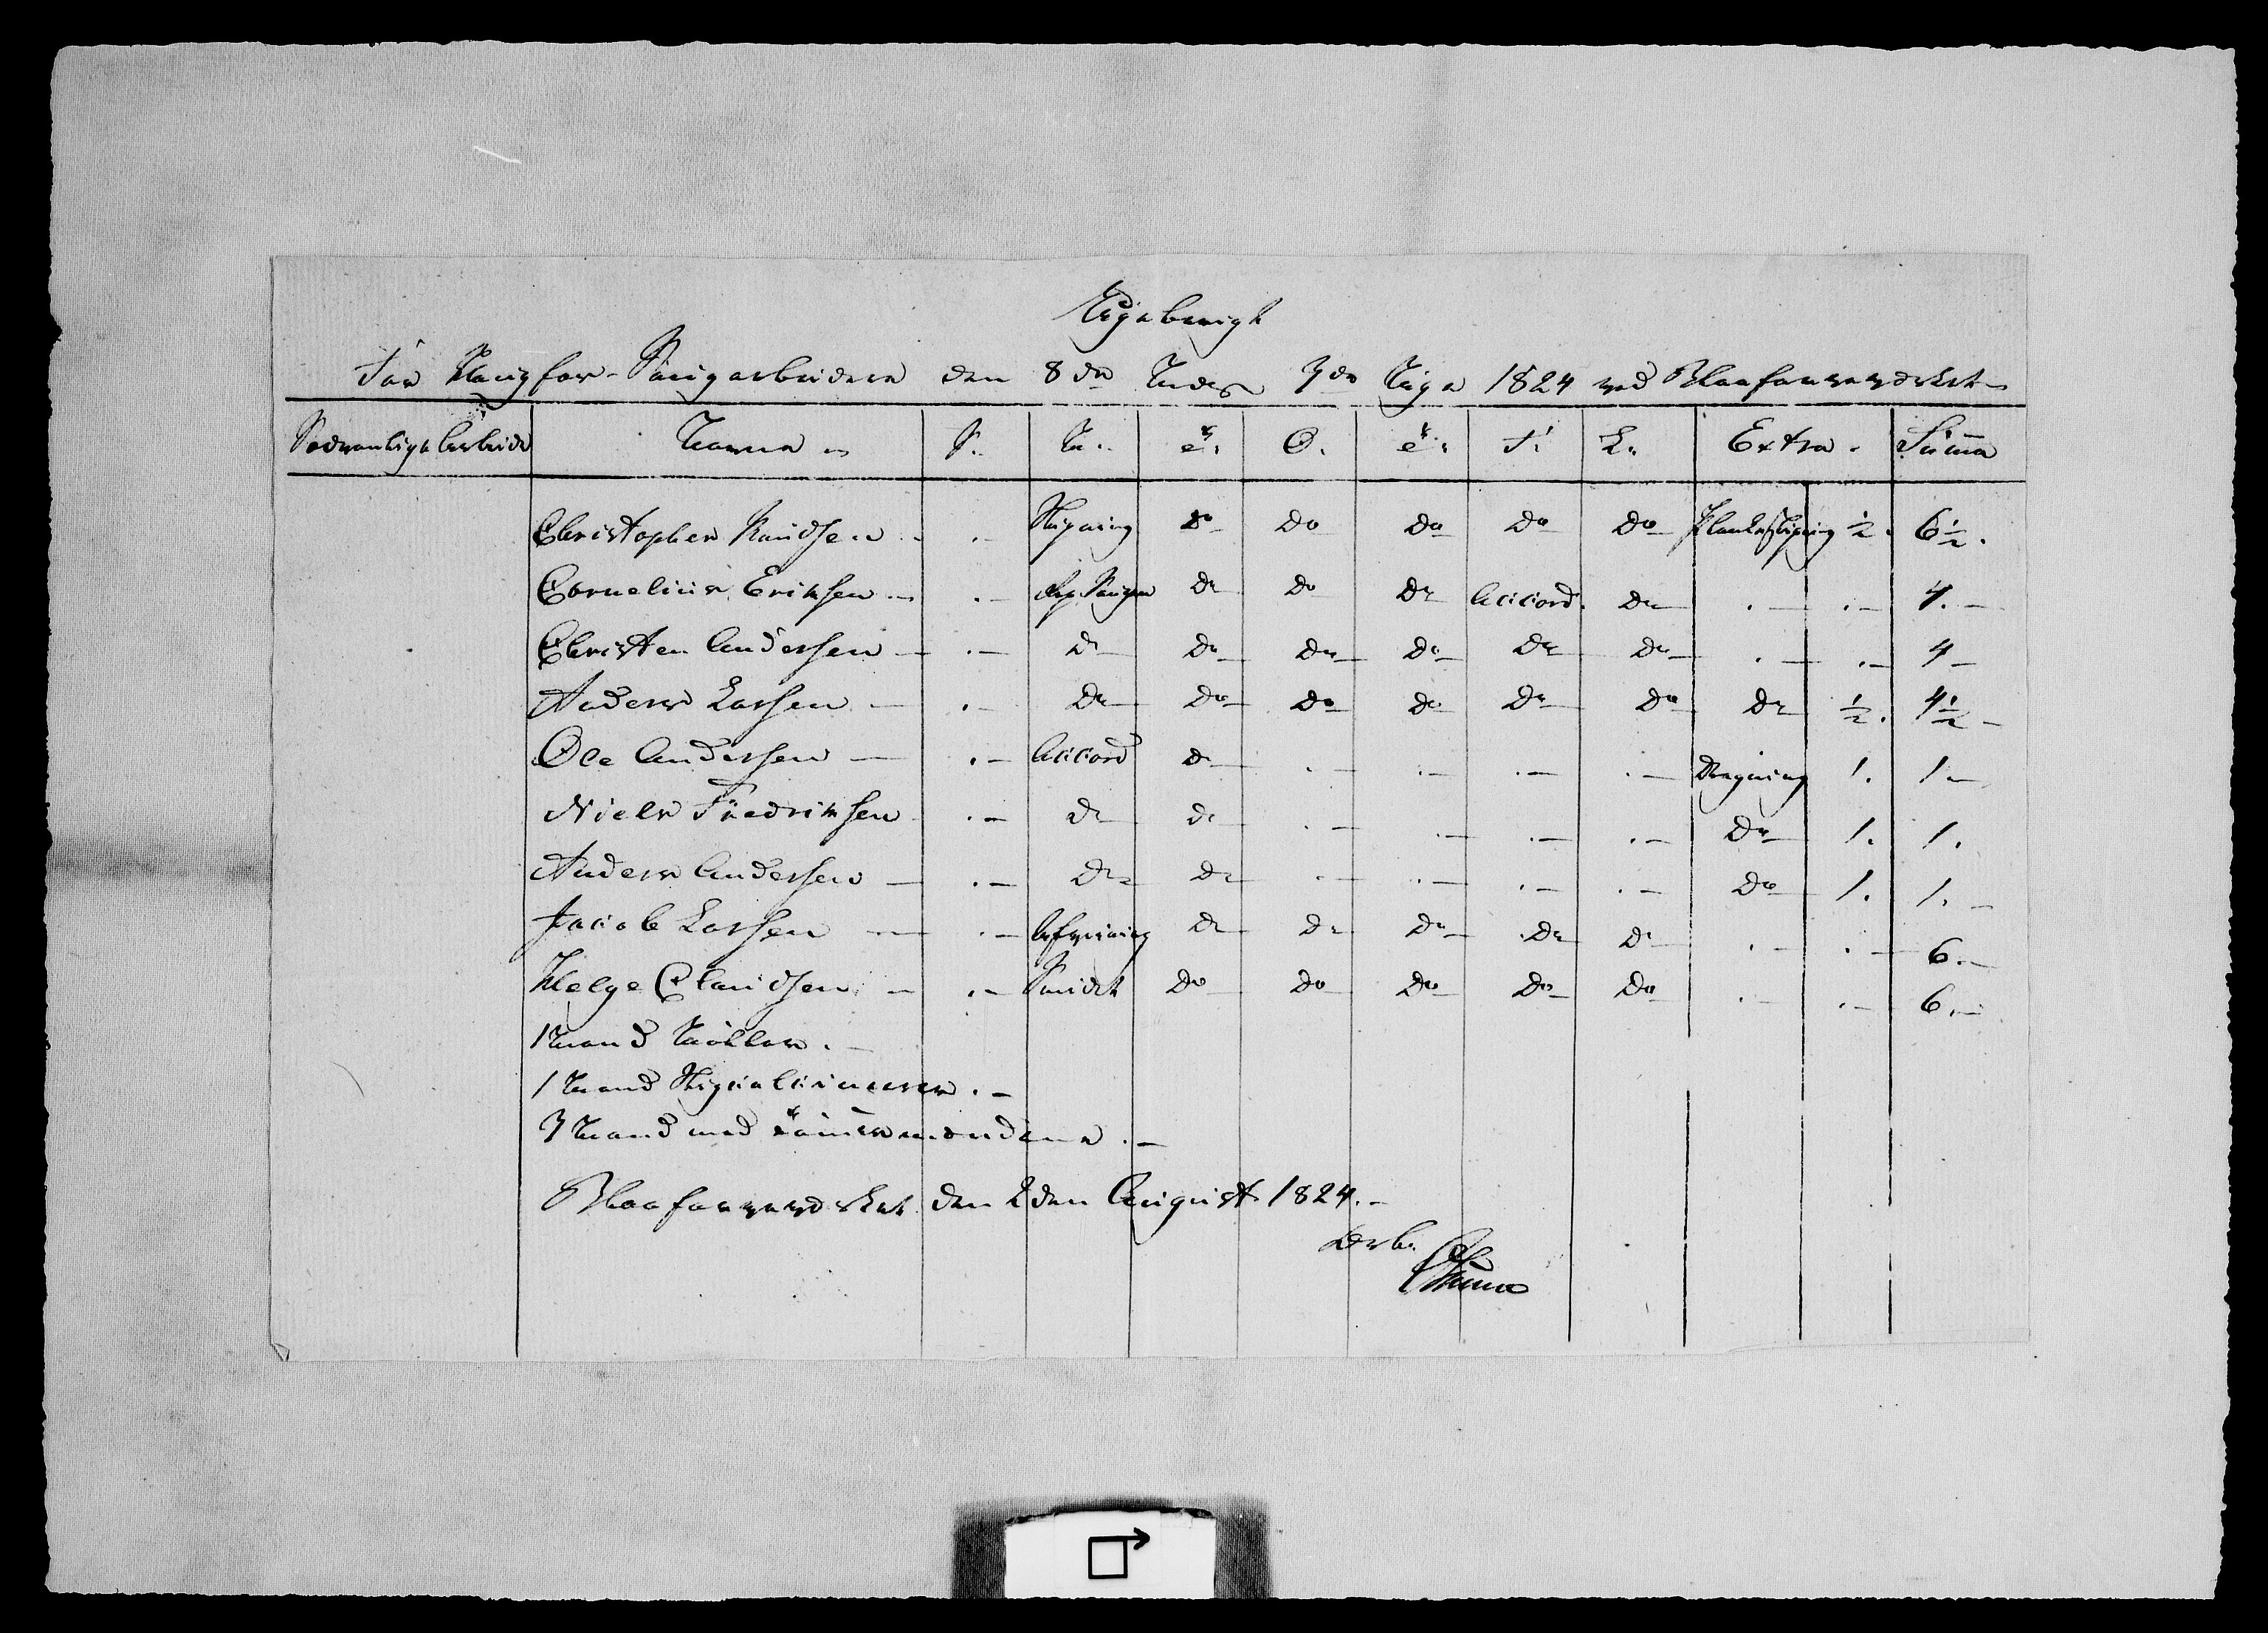 Ugeberigt
for Haugfos-Saugarbeidere den 8de Maaned 3de Uge 1824 ved Blaafarveverket
Sædvanlige Arbeide Navne S. M. T. O. T. F. L. Extra. Suma
Christopher Knudsen .- do do do do do ½. 6½.
Cornelius Eriksen .- Rep. Saugen do do do Accord. do .- .- 4.-
Christen Andersen - .- do do do do do do .- .- 4-
Anders Larsen - .- do do do do do do do ½. 4½-
Ole Andersen - .- Accord do .- .- .- .- 1. 1-
Niels Fredriksen .- do do .- .- .- .- do 1. 1.
Anders Andersen - .- do do .- .- .- .- do 1. 1.-
Jacob Larsen - .- do do do do do .- .- 6.-
Helge Claudsen - .- Smidt do do do do do .- .- 6.-
1 Mand Møller.-
1 Mand
3 Mand med Tømermændene.-
Blaafarveverket den 2den August 1824.-